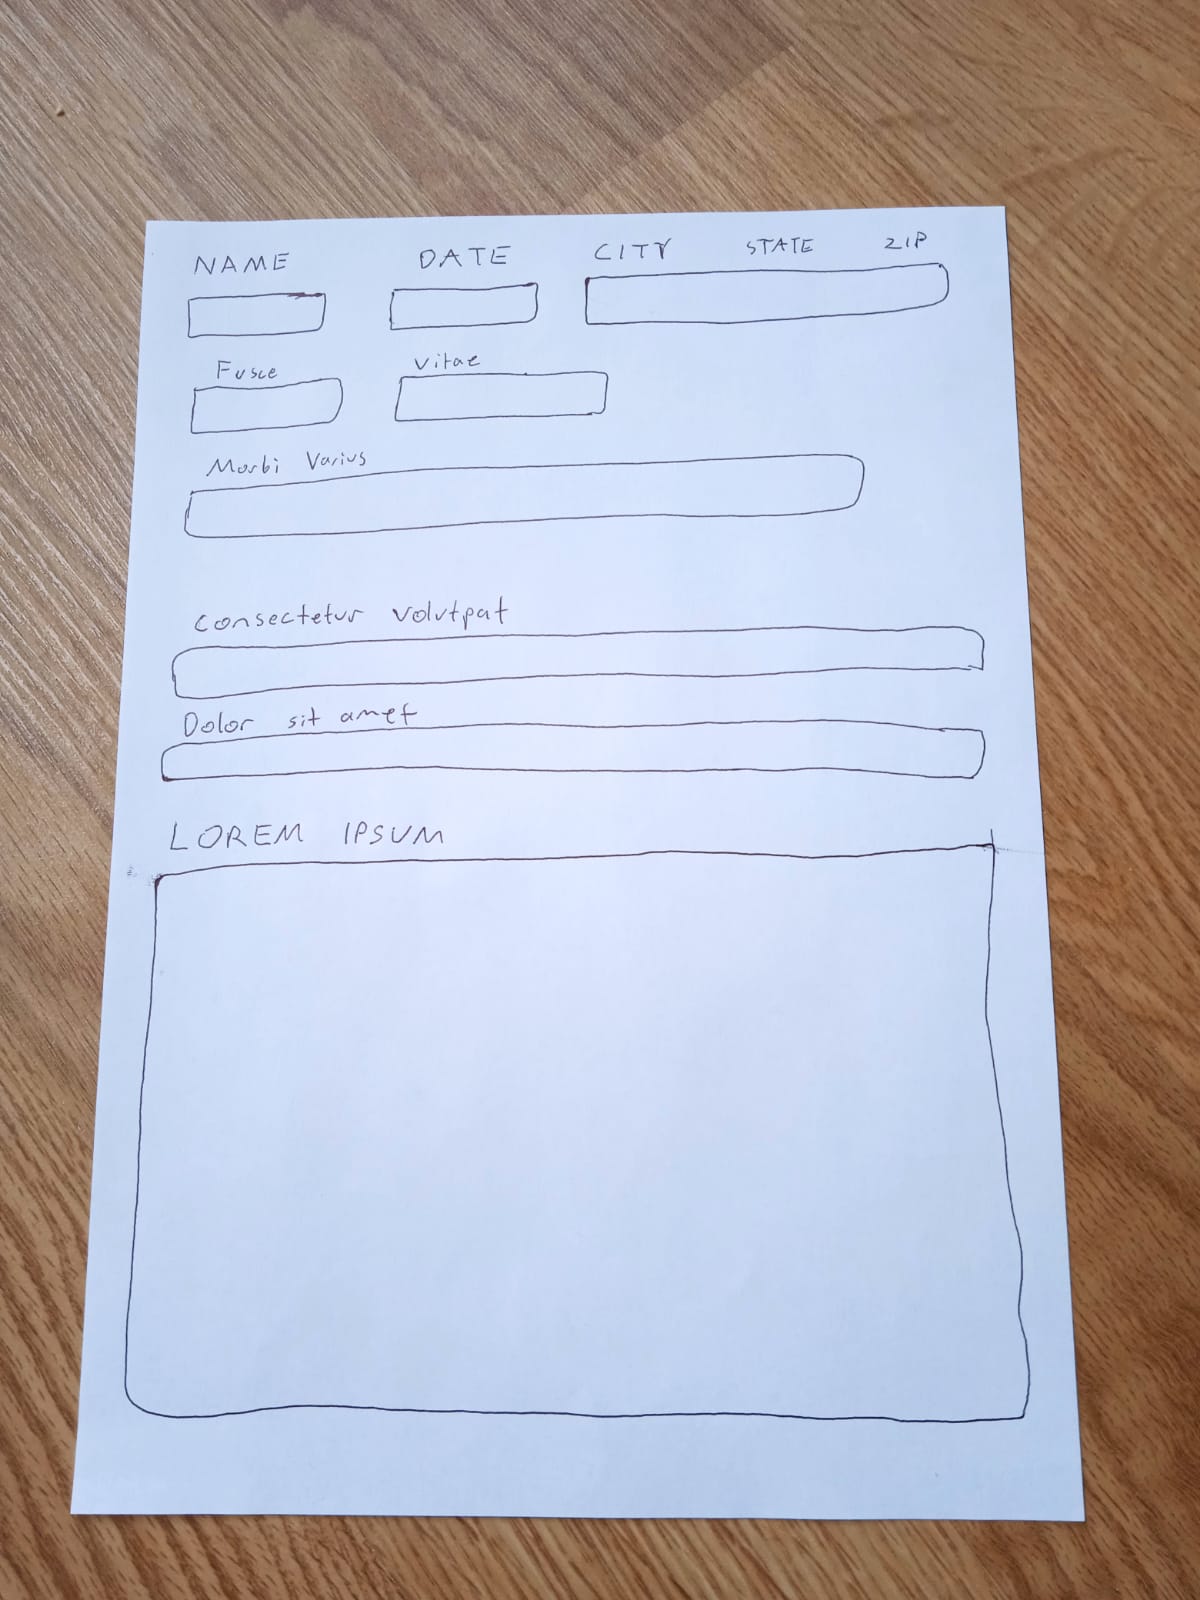 NAME DATE CITY STATE ZIP
Fusce Vitae
Morbi Varius
Consectetur volutpat
Dolor sit amet
LOREM IPSUM